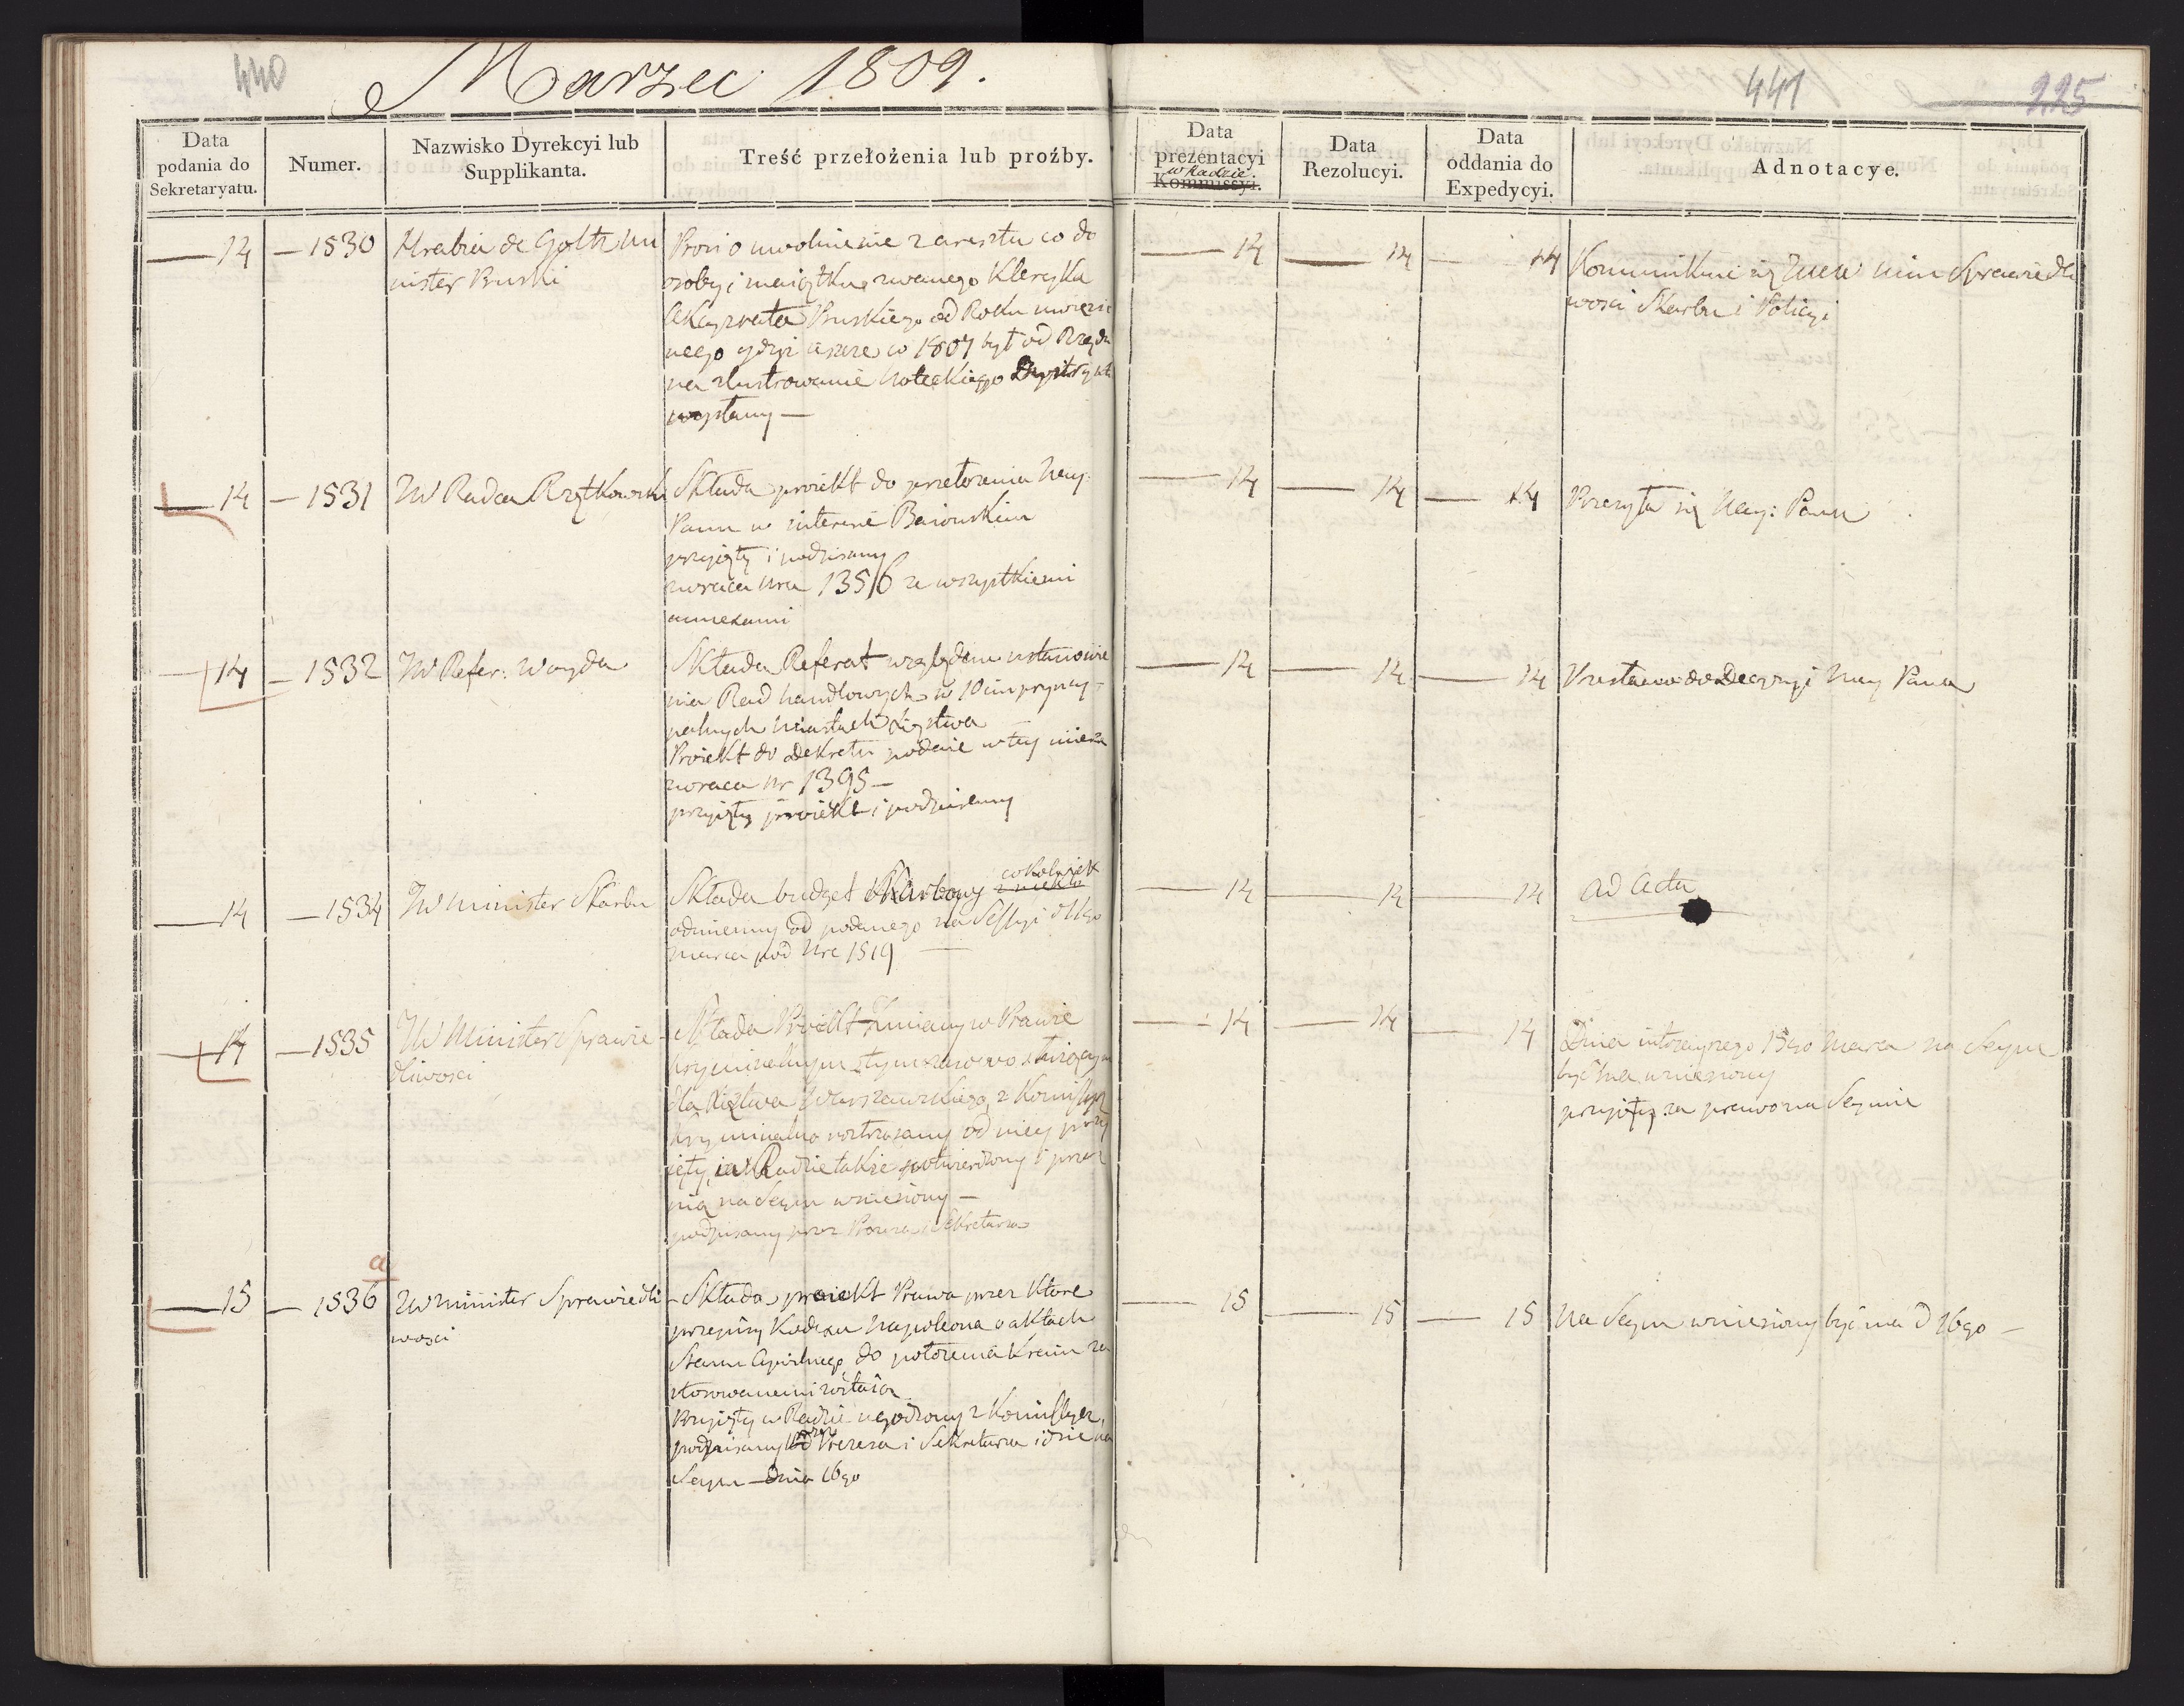 440
Marzec 1809.
441
225
Data podania do Sekretaryatu.
Numer.
Nazwisko Dyrekcyi lub Supplikanta.
Treść przełożenia lub proźby.
Data prezentacyi w Radzie Kommissyi.
Data Rezolucyi.
Data oddania do Expedycyi.
Adnotacye.
14
1530
Hrabia de Goltz Mi
nister Pruski
Prosi o uwolnienie z aresztu co do
osoby i maiątku zwanego Kleryka
Pruskiego od Roku uwięzio
nego gdyż w 1807 był od Rządu
na zlustrowanie Noteckiego Dystryktu
wysłany —
14
14
14
Kommunikuie się min Sprawiedli
wości Skarbu i Policyi
14
1531
JW Radca Rzątkowski
Składa proiekt do przełożenia Nay:
Panu w interesie Baiońskim
przyięty i podpisany
zwraca Nra 1356 ze wszystkiemi
annexami
14
14
14
Przesyła się Nay: Panu
14
1532
JW Refer: Woyda
Składa Referat względem ustanowie
nia Rad handlowych w 10 im pryncy-
palnych Miastach Xięstwa
Proiekt do Dekretu podaie w tey mierze
zwraca Nr 1395 —
przyięty proiekt i podpisany
14
14
14
Przesłano do Decyzyi Nay Pana
14
1534
JW Minister Skarbu
Składa budget Skarbowy cokolwiek
odmienny od podanego na Sessyi
marca pod Nre 1519 —
14
14
14
ad Acta
14
1535
JW Minister Sprawie-
dliwości
Składa Proiekt Zmiany w Prawie
kryminalnym tymczasowo służącym
dla Xięstwa Warszawskiego, z Kommissyą
kryminalną roztrząsany od niey przy
ięty, i w Radzie także potwierdzony i przez
nią na Seym wniesiony —
podpisany przez Prezesa i Sekretarza
14
14
14
Dnia iutrzeyszego 15go Marca na Seym
być ma wniesiony
przyięty za prawo na Seymie
15
1536
a
JW Minister Sprawiedli
wości
Składa proiekt Prawa przez które
przepisy Kodexu Napoleona o aktach
Stanu Cywilnego do położenia Kraiu za
stosowanemi zostaią
Przyięty w Radzie ugodzony z Kommissyą,
podpisany przez Prezesa i Sekretarza idzie na
Seym — dnia 16go
15
15
15
Na Seym wniesiony być ma d 16go —